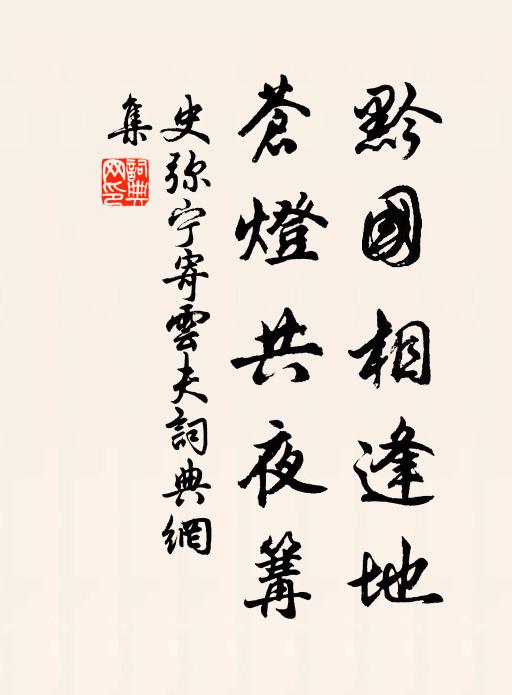 黔國相逢地
蒼燈共夜篝
史弥宁寄雲夫詞典網
集
詞典網印